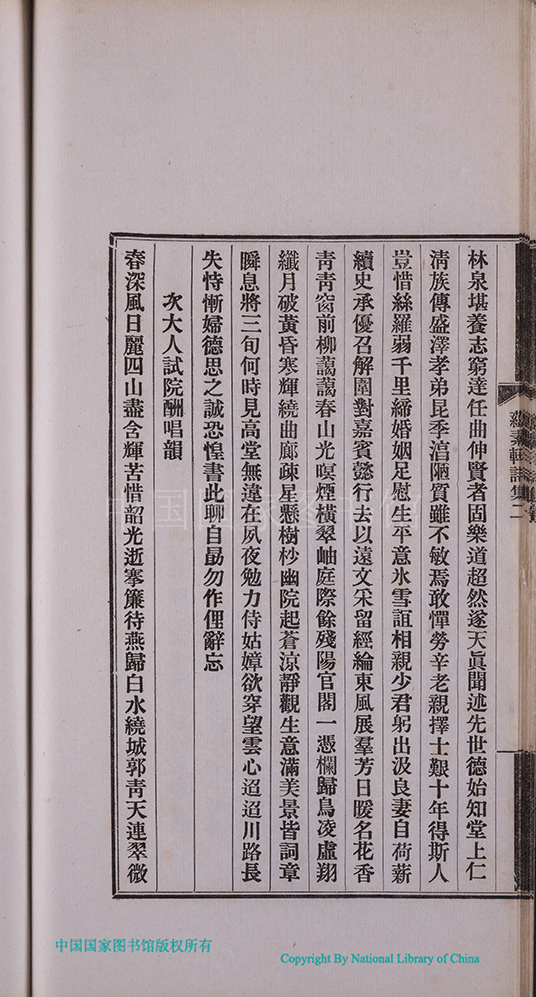 林泉堪養志窮達任曲伸賢者固樂道超然遂天眞聞述先世德始知堂上仁
淸族傳盛澤孝弟昆季湻陋質雖不敏焉敢憚勞辛老親擇士艱十年得斯人
豈惜絲羅弱千里締婚姻足慰生平意氷雪誼相親少君躬出汲良妻自荷薪
續史承優召解圍對嘉賓懿行去以遠文采留經綸東風展羣芳日暖名花香
靑靑窗前柳藹藹春山光暝煙橫翠岫庭際餘殘陽官閣一憑欄歸鳥凌虛翔
纖月破黃昏寒輝繞曲廊疎星懸樹杪幽院起蒼涼靜觀生意滿美景皆詞章
瞬息將三旬何時見高堂無違在夙夜勉力侍姑嫜欲穿望雲心迢迢川路長
失恃慚婦德思之誠恐惶書此聊自勗勿作俚辭忘
次大人試院酬唱韻
春深風日麗四山盡含輝苦惜韶光逝搴簾待燕歸白水繞城郭靑天連翠微
中国国家图书馆版权所有
Copyright By National Library of China